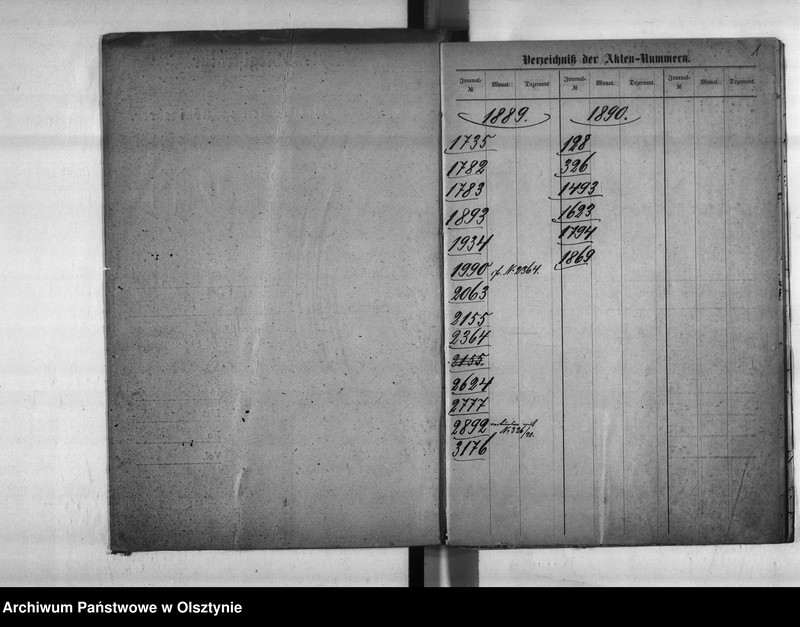 1
Verzeichniß der Akten-Nummern.
Journal-№ Monat. Dezernent. Journal-№ Monat. Dezernent. Journal-№ Monat. Dezernent.
1889. 1890.
1735 128
1782 326
1783 1493
1893 1623
1934 1794
1990 cf. N. 2364. 1869
2063
2155
2364
2155.
2624
2777
2892 verbunden mit
N. 326/90.
3176
Archiwum Państwowe w Olsztynie